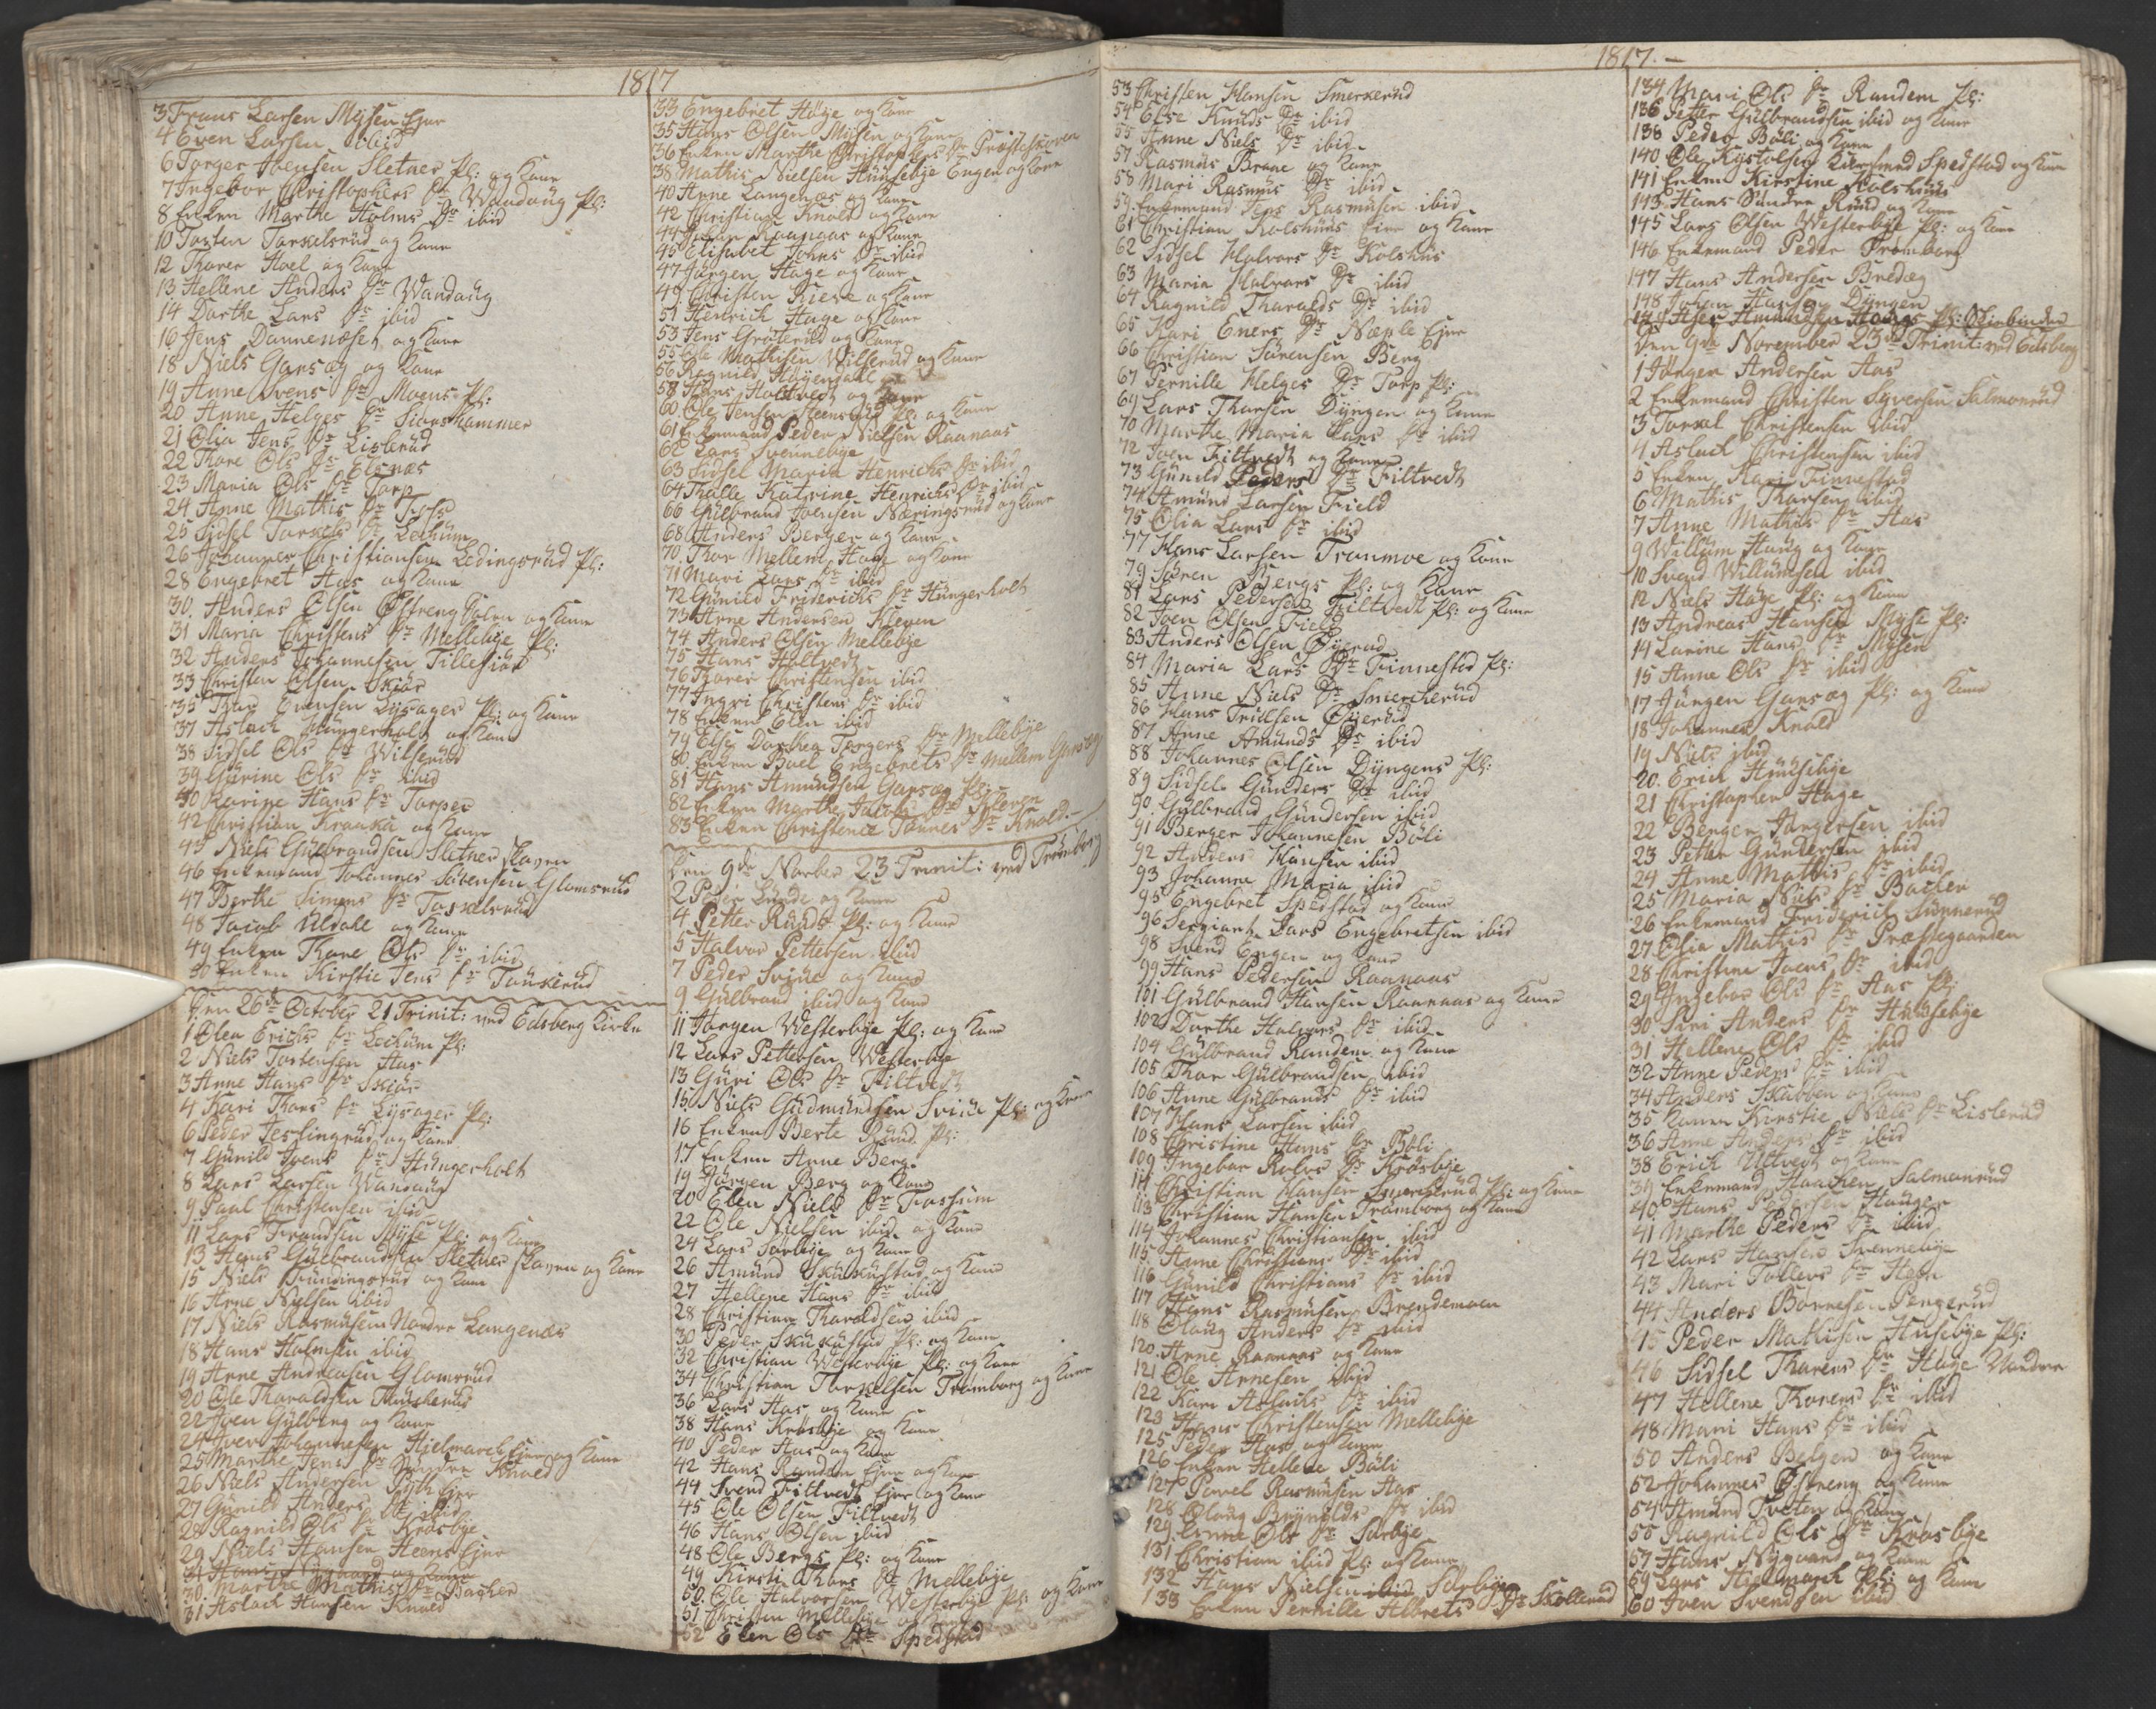 1817
3 Frans Larsen Mysen Ejer
4 Even Larsen ibid
6 Torger Joensen Sletner Pl: og Kone
7 Ingebor Christophers Dr Wandaug Pl:
8 Enken Marthe Holms Dr ibid
10 Tosten Torkelsrud og Kone
12 Thorer Hoel og Kone
13 Hellene Anders Dr Wandaug
14 Dorthe Lars Dr ibid
16 Jens Dannenæse og Kone
18 Niels Garsæg og Kone
19 Anne Svens Dr Moens Pl:
20 Anne Helges Dr
21 Olia Jens Dr Lislerud
22 Thore Ols Dr Elsnæs
23 Maria Ols Dr Torp
24 Anne Mathis Dr
25 Sidsel Torkels Dr Lechum
26 Johannes Christiansen Ledingsrud Pl:
28 Engebret Aas og Kone
30. Anders Olsen Østreng og Kone
31 Maria Christens Dr Mellebye Pl:
32 Anders Johannesen Tillesiør
33 Christen Olsen Skiør
35 Thor Evensen Lysager Pl: og Kone
37 Aslach Hungerholt og Kone
38 Sidsel Ols Dr Wilserud
39 Gurine Ols Dr ibid
40 Karine Hans Dr Torper
42 Christian Kraaka og Kone
45 Niels Gulbrandsen Sletner Skoven
46 Enkemand Johannes Sørensen Glomsrud
47 Berthe Simens Dr Torkelsrud
48 Jacob Uldahl og Kone
49 Enken Thore Ols Dr ibid
50 Enken Kirstie Jens Dr Tuskerud
Den 26de October 21 Trinit: ved Edsberg Kirke
1 Olea Erichs Dr Lechum Pl:
2 Niels Tostensen Aas
3 Anne Hans Dr Skiør
4 Kari Thors Dr Lysager Pl:
6 Peder Teslingrud og Kone
7 Gunild Joens Dr Hungerholt
8 Lars Larsen Wandaug
9 Paul Christensen ibid
11 Lars Frandsen Myse Pl: og Kone
13 Hans Gulbrandsen Sletner Skoven og Kone
15 Niels Trundingsrud og Kone
16 Arne Nielsen ibid
17 Niels Rasmusen Nordre Langenæs
18 Hans Holmsen ibid
19 Arne Andreasen Glomsrud
20 Ole Tharaldsen Tuskerud
22 Joen Gulberg og Kone
24 Iver Johannesen Hielmark Ejer og Kone
25 Marthe Jens Dr Søndre Knold
26 Niels Andersen
27 Gunild Anders Dr ibid
28 Ragnild Ols Dr Krosbye
29 Niels Hansen Heens Ejer
31 Hans Nygaard og Kone
30. Marthe Mathis Dr Bacher
31 Aslach Hansen Knold
33 Engebret Høye og Kone
35 Hans Olsen Mysen og Kone
36 Enken Marthe Christophers Dr Præsteskoven
38 Mathis Nielsen Huusebye Engen og Kone
40 Arne Langenæs og Kone
42 Christian Knold og Kone
44 Johan Raanaas og Kone
45 Elisabet Johns Dr ibid
47 Jørgen Hage og Kone
49 Christen Kieve og Kone
51 Henrich Hage og Kone
53 Jens Grøterud og Kone
55 Ole Mathisen Wilserud og Kone
56 Ragnild Høyendahl
58 Hans Holtvedt og Kone
60 Ole Jensen Heensrud Pl: og Kone
61 Enkemand Peder Nielsen Raanaas
62 Lars Svennebye
63 Sidsel Maria Henrichs Dr ibid
64 Thalle Katrine Henrichs Dr ibid
66 Gulbrand Joensen Næringsrud og Kone
68 Anders Berger og Kone
70 Thor Mellem Hage og Kone
71 Mari Lars Dr ibid
72 Gunild Friderichs Dr Hungerholt
73 Arne Andersen Kleven
74 Anders Olsen Mellebye
75 Hans Holtvedt
76 Thorer Christensen ibid
77 Ingri Christens Dr ibid
78 Enken Elen ibid
79 Else Dorthea Torgers Dr Mellebye
80 Enken Boel Engebrets Dr Mellem Garsæg
81 Hans Amundsen Garsæg Pl:
82 Enken Marthe Jacobs Dr Kleven
83 Enken Christence Tønnes Dr Knold
Den 9de Novber 23 Trinit: ved Trømborg
2 Peder Lunde og Kone
4 Petter Runds Pl: og Kone
5 Halvor Pettersen ibid
7 Peder Sviue og Kone
9 Gulbrand ibid og Kone
11 Jørgen Westerbye Pl: og Kone
12 Lars Pettersen Westerbye
13 Guri Ols Dr Filtvedt
15 Niels Gudmundsen Sviue Pl: og Kone
16 Enken Berte Rund Pl:
17 Enken Anne Berg
19 Jørgen Berg og Kone
20 Elen Niels Dr Fossum
22 Ole Nielsen ibid og Kone
24 Lars Sørbye og Kone
26 Amund Skukustad og Kone
27 Hellene Hans Dr ibid
28 Christian Tharaldsen ibid
30 Peder Skukustad Pl: og Kone
32 Christian Westerbye Pl: og Kone
34 Christian Torkelsen Trømborg og Kone
36 Lars Aas og Kone
38 Hans Krosbye og Kone
40 Peder Aas og Kone
42 Hans Randem Ejer og Kone
44 Svend Filtvedt Ejer og Kone
45 Ole Olsen Filtvedt
46 Hans Olsen ibid
48 Ole Bergs Pl: og Kone
49 Kirsti Thors Dr Mellebye
50. Ole Halvorsen Westerbye Pl: og Kone
51 Christen Mellebye og Kone
52 Elen Ols Dr Spedstad
1817.
53 Christen Hansen Smerkerud
54 Else Knuds Dr ibid
55 Anne Niels Dr ibid
57 Rasmus Braae og Kone
58 Mari Rasmus Dr ibid
59 Enkemand Jens Rasmusen ibid
61 Christian Kolshuus Ejer og Kone
62 Sidsel Halvors Dr Kolshus
63 Maria Halvors Dr ibid
64 Ragnild Tharalds Dr ibid
65 Kari Eners Dr Næple Ejer
66 Christian Sørensen Berg
67 Pernille Helges Dr Torp Pl:
69 Lars Thorsen Dyngen og Kone
70 Marthe Maria Lars Dr ibid
72 Joen Filtvedt og Kone
73 Gunild Peders Dr Filtvedt
74 Amund Larsen Field
75 Olia Lars Dr ibid
77 Hans Larsen Tronmoe og Kone
79 Søren Bergs Pl: og Kone
81 Lars Pedersen Filtvedt Pl: og Kone
82 Joen Olsen Field
83 Anders Olsen Øyerud
84 Maria Lars Dr Finnestad Pl:
85 Anne Niels Dr Smercherud
86 Hans Trulsen Øyerud
87 Anne Amunds Dr ibid
88 Johannes Olsen Dyngens Pl:
89 Sidsel Gunders Dr ibid
90. Gulbrand Gundersen ibid
91 Berger Johannesen Bøli
92 Anders Hansen ibid
93 Johanne Maria ibid
95 Engebret Spedstad og Kone
96 Sergiant Lars Engebretsen ibid
98 Svend Engen og Kone
99 Hans Pedersen Raanaas
101 Gulbrand Hansen Raanaas og Kone
102 Dorthe Halvors Dr ibid
104 Gulbrand Randem og Kone
105 Thor Gulbrandsen ibid
106 Anne Gulbrands Dr ibid
107 Hans Larsen ibid
108 Christine Hans Dr Bøli
109 Ingebor Rolvs Dr Krosbye
111 Christian Hansen Smercherud Pl: og Kone
113 Christian Hansen Trømborg og Kone
114 Johannes Christiansen ibid
115 Anne Christians Dr ibid
116 Gunild Christians Dr ibid
117 Hans Rasmusen Brendemoen
118 Olaug Anders Dr ibid
120. Arne Raanaas og Kone
121 Ole Arnesen ibid
122 Kari Aslachs Dr ibid
123 Hans Christensen Mellebye
125 Peder Aas og Kone
126 Enken Hellene Bøli
127 Povel Rasmusen Aas
128 Olaug Brynilds Dr ibid
129 Anne Ols Dr Sørbye
131 Christian ibid Pl: og Kone
132 Hans Nielsen ibid Sørbye
133 Enken Pernille Albrets Dr Skollerud
134 Mari Ols Dr Randem Pl:
136 Petter Gulbrandsen ibid og Kone
138 Peder Bøli og Kone
140 Ole Kystolsen Spedstad og Kone
141 Enken Kirstine Kolshuus
143 Hans Søndre Rund og Kone
145 Lars Olsen Westerbye Pl: og Kone
146 Enkemand Peder Trømborg
147 Hans Andersen Bredæg
148 Johan Hansen Dyngen
Den 9de November 23de Trinit: ved Edsberg
1 Jørgen Andersen Aas
2 Enkemand Christen Syversen Salmonrud
3 Torkel Christensen ibid
4 Aslach Christensen ibid
5 Enken Kari Finnestad
6 Mathis Thorsen ibid
7 Anne Mathis Dr Aas
9 Willum Haug og Kone
10 Svend Willumsen ibid
12 Niels Høye Pl: og Kone
13 Andreas Hansen Myse Pl:
14 Larine Hans Dr Mysen
15 Anne Ols Dr ibid
17 Jørgen Garsæg Pl: og Kone
18 Johannes Knold
19 Niels ibid
20. Erich Huusebye
21 Christopher Hage
22 Berger Jørgensen ibid
23 Petter Gundersen ibid
24 Anne Mathis Dr ibid
25 Maria Niels Dr Bacher
26 Enkemand Friderich Sunnerud
27 Olia Mathis Dr Præstegaarden
28 Christine Joens Dr ibid
29 Ingebor Ols Dr Aas Pl:
30 Siri Anders Dr Huusebye
31 Hellene Ols Dr ibid
32 Anne Peders Dr ibid
34 Anders Skabben og Kone
35 Karen Kirstie Niels Dr Lislerud
36 Anne Anders Dr ibid
38 Erich Ultvedt og Kone
39 Enkemand Haachen Salmonrud
40 Hans Pedersen Haugen
41 Marthe Peders Dr ibid
42 Lars Hansen Svennebye
43 Mari Tollevs Dr Heen
44 Anders Børresen Pengerud
45 Peder Mathisen Husebye Pl:
46 Sidsel Thorers Dr Hage Nordre
47 Hellene Thorers Dr ibid
48 Mari Hans Dr ibid
50 Anders Belgen og Kone
52 Johannes Østreng og Kone
54 Amund Tveten og Kone
55 Ragnild Ols Dr Krosbye
57 Hans Nygaard og Kone
59 Lars Hielmark Pl: og Kone
60 Iven Svendsen ibid